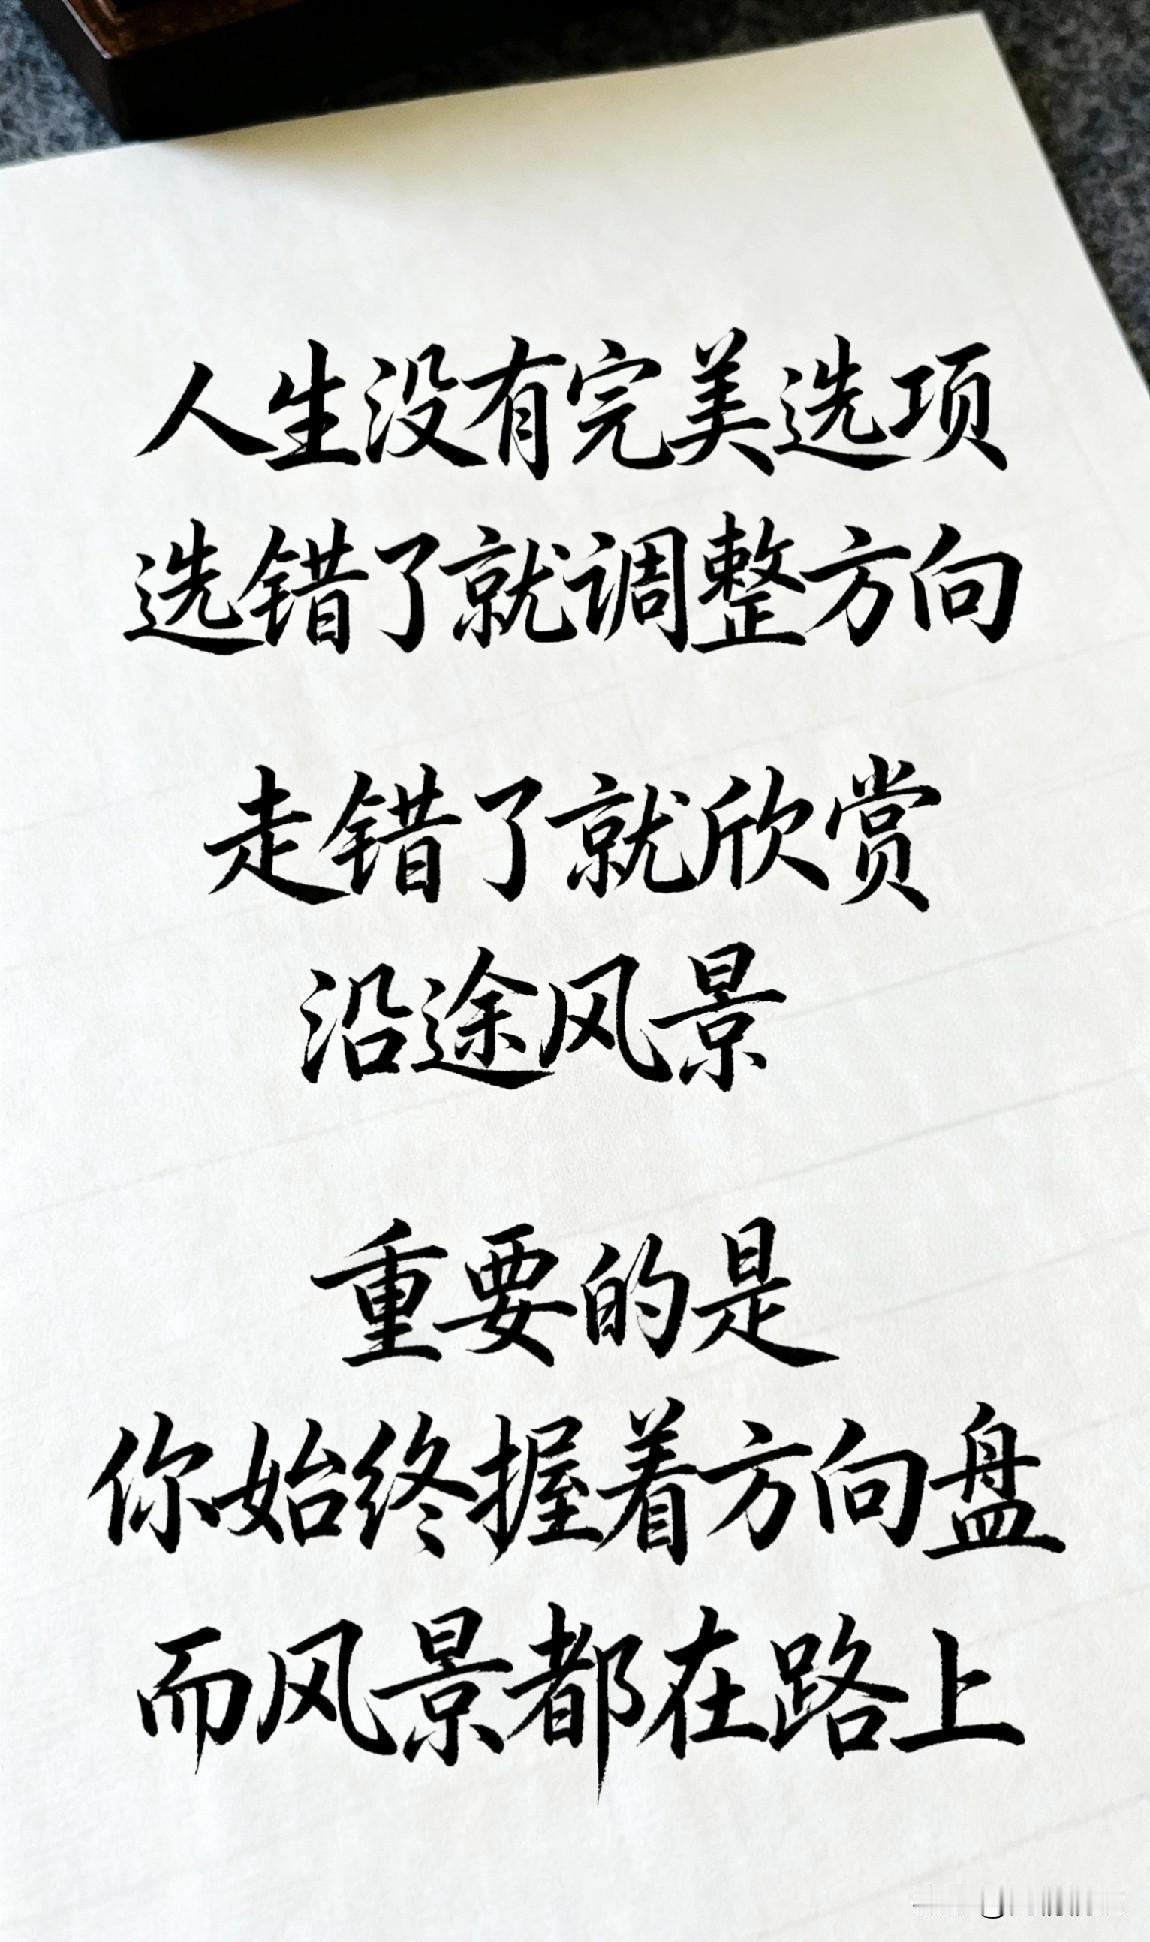 人生没有完美选项
选错了就调整方向
走错了就欣赏
沿途风景
重要的是
你始终握着方向盘
而风景都在路上